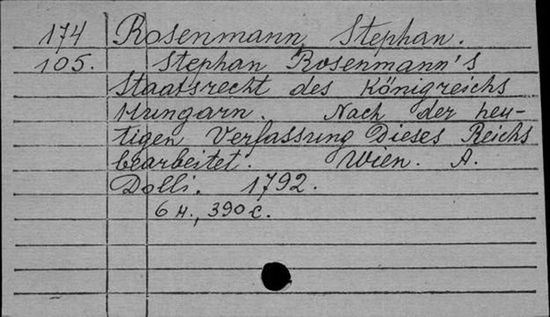 174 Rosenmann, Stephan.
105. Stephan Rosenmann's
Staatsrecht des Königreichs
Hungarn. Nach der heu-
tigen Verfassung Dieses Reichs
bearbeitet. Wien. A.
Dolli. 1792.
6 н., 390 с.